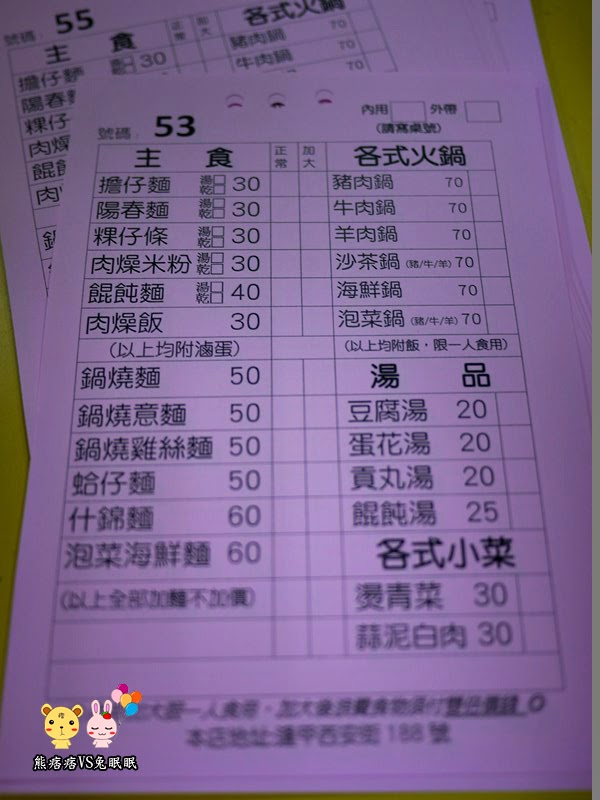 號碼: 55
主 食 正常 加大 各式火鍋
擔仔麵 30 豬肉鍋 70
牛肉鍋 70
內用 外帶
(請寫桌號)
號碼: 53
主 食 正常 加大 各式火鍋
擔仔麵 湯 乾 30 豬肉鍋 70
陽春麵 湯 乾 30 牛肉鍋 70
粿仔條 湯 乾 30 羊肉鍋 70
肉燥米粉 湯 乾 30 沙茶鍋 (豬/牛/羊) 70
餛飩麵 湯 乾 40 海鮮鍋 70
肉燥飯 30 泡菜鍋 (豬/牛/羊) 70
(以上均附滷蛋) (以上均附飯・限一人食用)
鍋燒麵 50 湯 品
鍋燒意麵 50 豆腐湯 20
鍋燒雞絲麵 50 蛋花湯 20
蛤仔麵 50 貢丸湯 20
什錦麵 60 餛飩湯 25
泡菜海鮮麵 60 各式小菜
(以上全部加麵不加價) 燙青菜 30
蒜泥白肉 30
本店地址:逢甲西安街 188 號
熊痞痞VS兔眠眠